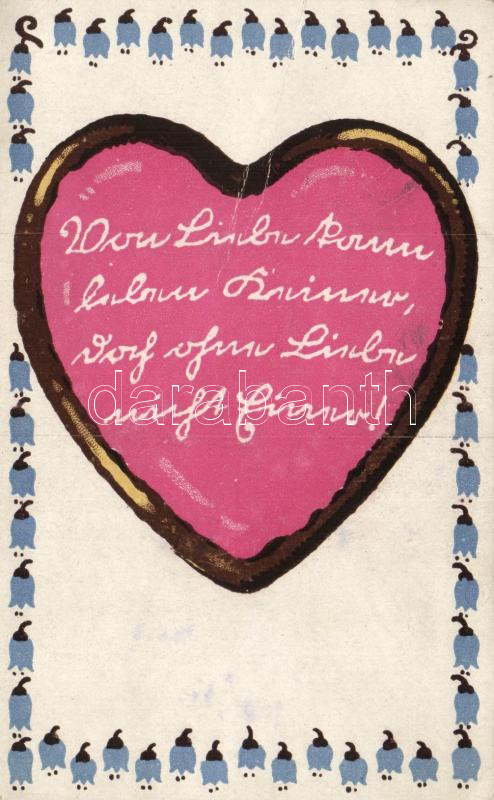 Von Liebe kann
leben Keiner,
doch ohne Liebe
darabanth
nicht Einer!